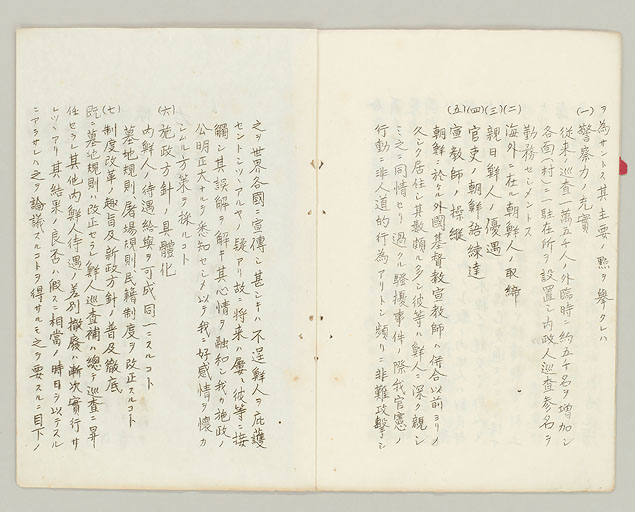 ヲ為サントス其主要ノ點ヲ擧クレハ
(一)警察力ノ充實
從来ノ巡査一萬五千人ノ外臨時ニ約五千名ヲ増加シ
各面(村)ニ一駐在所ヲ設置シ内地人巡査参名ヲ
勤務セシメントス
(二)海外ニ在ル朝鮮人ノ取締
(三)親日鮮人ノ優遇
(四)官吏ノ朝鮮語練達
(五)宣教師ノ操縦
朝鮮ニ於ケル外國基督教宣教師ハ併合以前ヨリ
久シク居住シ其數頗ル多ク彼等ハ鮮人ニ深ク親シ
ミ之ニ同情セリ過クル騒擾事件ノ際我官憲ノ
行動ニ非人道的行為アリトシ頻リニ非難攻撃シ
之ヲ世界各國ニ宣傳シ甚シキハ不逞鮮人ヲ庇護
セントシツヽアルヤノ疑アリ故ニ將来ハ屢々彼等ニ接
觸シ其誤解ヲ解キ其心情ヲ融和シ我カ施政ノ
公明正大ナルヲ悉知セシメ以テ我ニ好感情ヲ懐カ
シムル方策ヲ採ルコト
(六)施政方針ノ具體化
内鮮人ノ待遇給與ヲ可成同一ニスルコト
墓地規則屠場規則民籍制度ヲ改正スルコト
(七)制度改革ノ趣旨及新政方針ノ普及徹底
既ニ墓地規則ハ改正セラレ鮮人巡査補ハ總テ巡査ニ昇
任セラレ其他内鮮人待遇ノ差別撤廢ハ漸次實行サ
レツヽアリ其結果ノ良否ハ假スニ相當ノ時日ヲ以テスル
ニアラサレハ之ヲ論議スルコトヲ得サルモ之ヲ要スルニ目下ノ